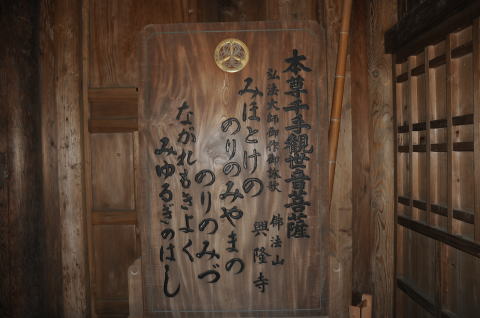 本尊千手觀世音菩薩
弘法大師御作御詠歌
佛法山
興隆寺
みほとけの
のりのみやまの
のりのみづ
ながれもきよく
みゆるぎのはし